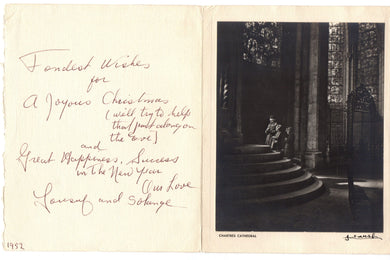 Fondest Wishes
for
A Joyous Christmas
(we'll try to help
that part along on
the
and
Great Happiness, Success
in the New Year
Our Love
Yousuf and Solange
1952
CHARTRES CATHEDRAL